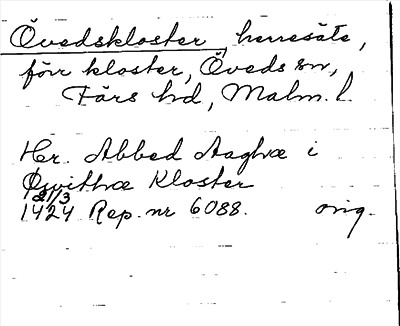 Övedskloster, herresäte,
förr kloster, Öveds sn,
Färs hd, Malm. l.
Hr. Abbed Aaghæ i
Øwithæ Kloster
21/3
1424 Rep. nr 6088. orig.